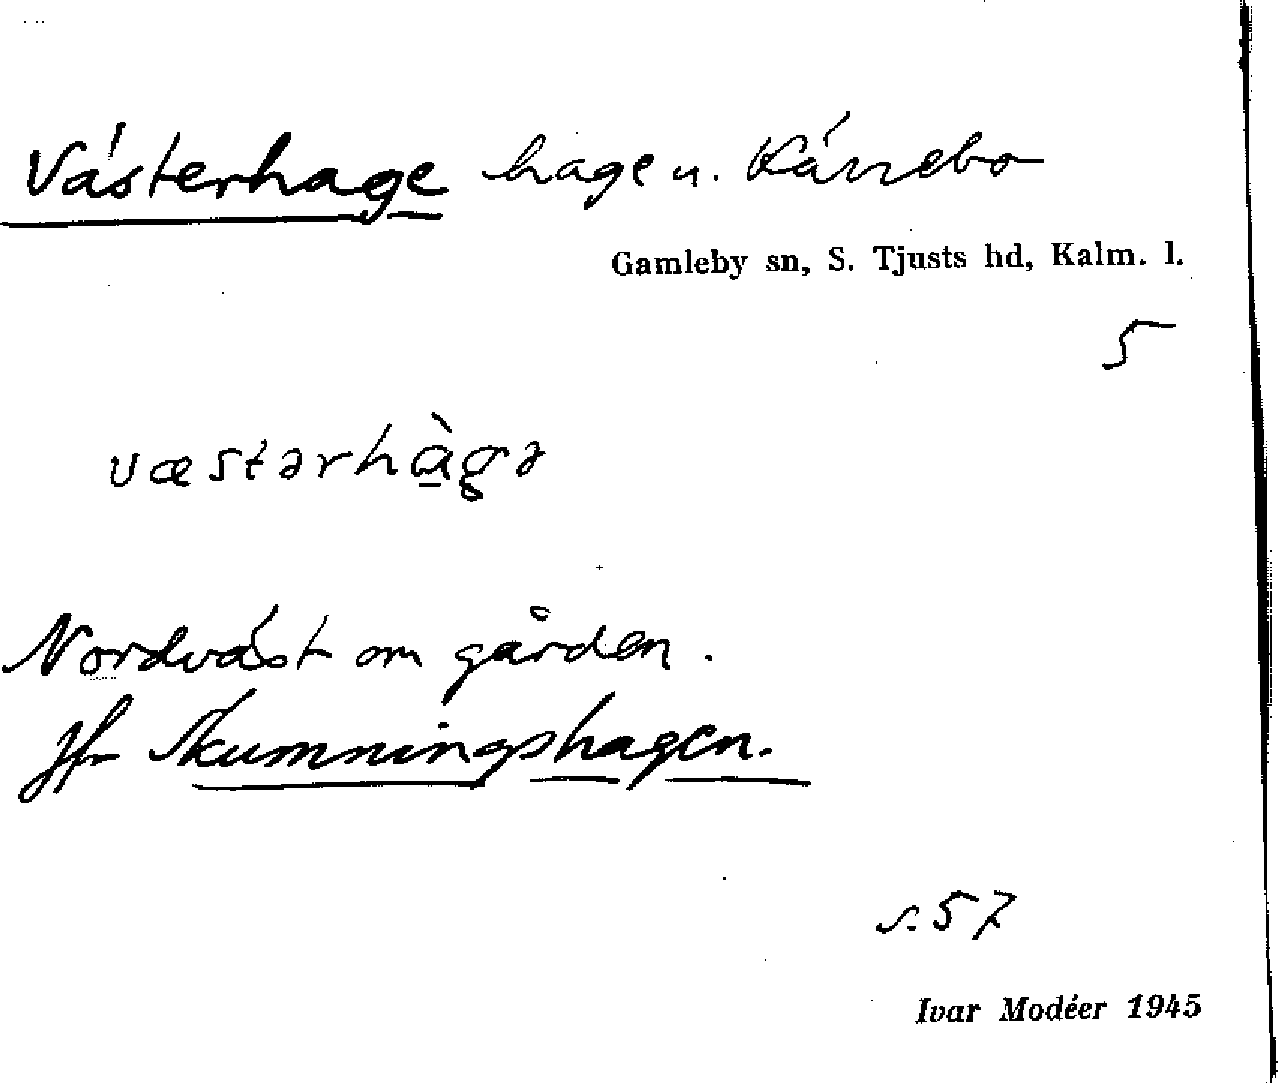 Västerhage hage u. Kärrebo
Gamleby sn, S. Tjusts hd, Kalm. l.
5
væstərhàgə
Nordväst om gården.
Jfr Skumningshagen.
s. 57
Ivar Modéer 1945